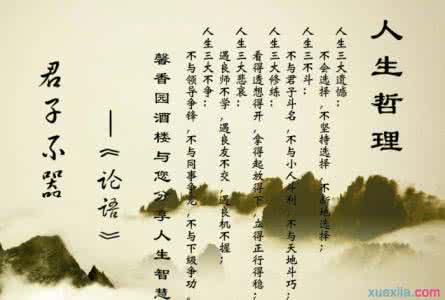 人生哲理
人生三大遗憾：
不会选择，不坚持选择，不断地选择；
人生三不斗：
不与君子斗名，不与小人斗利，不与天地斗巧；
人生三大修练：
看得透想得开，拿得起放得下，立得正行得稳；
人生三大悲哀：
遇良师不学，遇良友不交，遇良机不握；
人生三大不争：
不与领导争锋，不与同事争宠，不与下级争功。
馨香园酒楼与您分享人生智慧
——《论语》
君子不器
xuexila.com